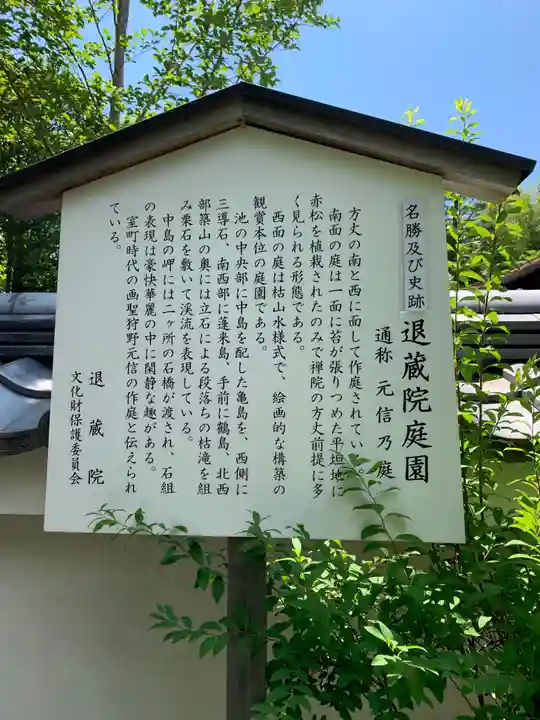 名勝及び史跡
退蔵院庭園
通称 元信乃庭
方丈の南と西に面して作庭されてい
南面の庭は一面に苔が張りつめた平坦地に
赤松を植栽されたのみで禅院の方丈前提に多
く見られる形態である。
西面の庭は枯山水様式で、絵画的な構築の
観賞本位の庭園である。
池の中央部に中島を配した亀島を、西側に
三導石、南西部に蓬来島、手前に鶴島、北西
部築山の奥には立石による段落ちの枯滝を組
み栗石を敷いて渓流を表現している。
中島の岬には二ヶ所の石橋が渡され、石組
の表現は豪快華麗の中に閑静な趣がある。
室町時代の画聖狩野元信の作庭と伝えられ
ている。
退蔵院
文化財保護委員会